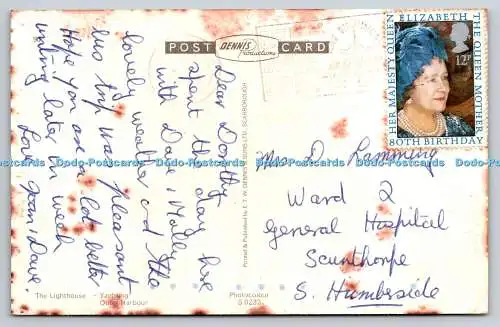 POST DENNIS Productions CARD
Dear Dorothy
spent the day here
with Dave, Molly
lovely weather and the
bus trip was pleasant
Hope you are a lot better
writing later in week
Love Joan, Dave.
Printed & Published by E. T. W. DENNIS & SONS LTD., SCARBOROUGH
The Lighthouse Yachting
Outer Harbour
Photocolour
HER MAJESTY QUEEN ELIZABETH THE QUEEN MOTHER
12P
80TH BIRTHDAY
Mrs D. Lamming
Ward 2
General Hospital
Scunthorpe
S. Humberside
Dodo-Postcards Dodo-Postcards Dodo-Postcards Dodo-Postcards Dodo-Postcards